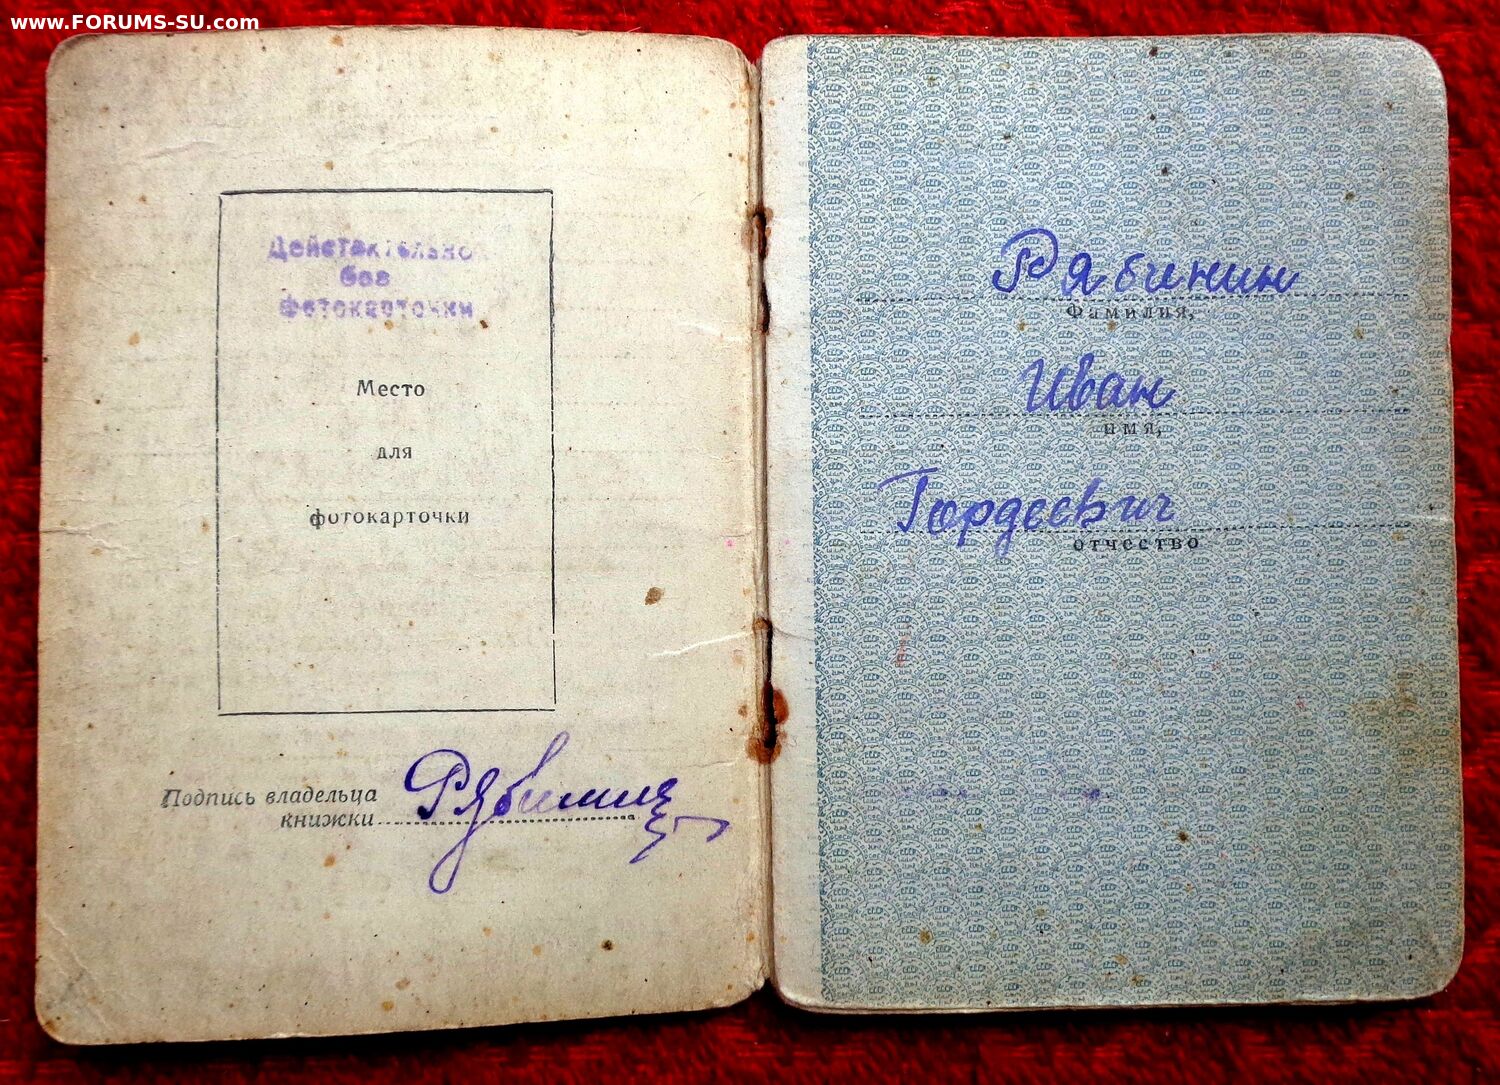 www.FORUMS-SU.com
Действительно
без
фотокарточки
Место
для
фотокарточки
Подпись владельца
книжки
Рябинин
Рябинин
Фамилия,
Иван
имя,
Гордеевич
отчество